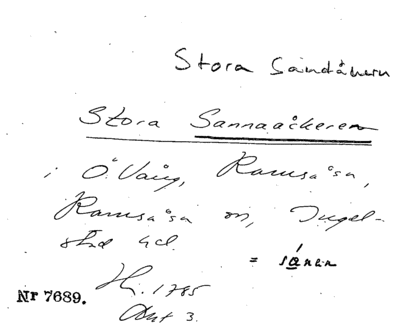 Stora Sandåkern
Stora Sannaåkeren
i Ö. Vång, Ramsåsa,
Ramsåsa sn, Ingel-
stad hd.
= sánen
Hs. 1785
Akt 3.
Nr 7689.